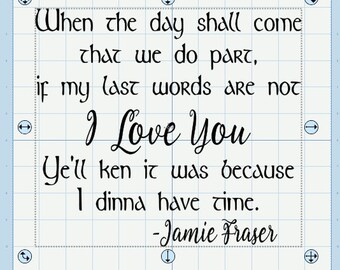 When the day shall come
that we do part,
if my last words are not
I Love You
Ye'll ken it was because
I dinna have time.
-Jamie Fraser